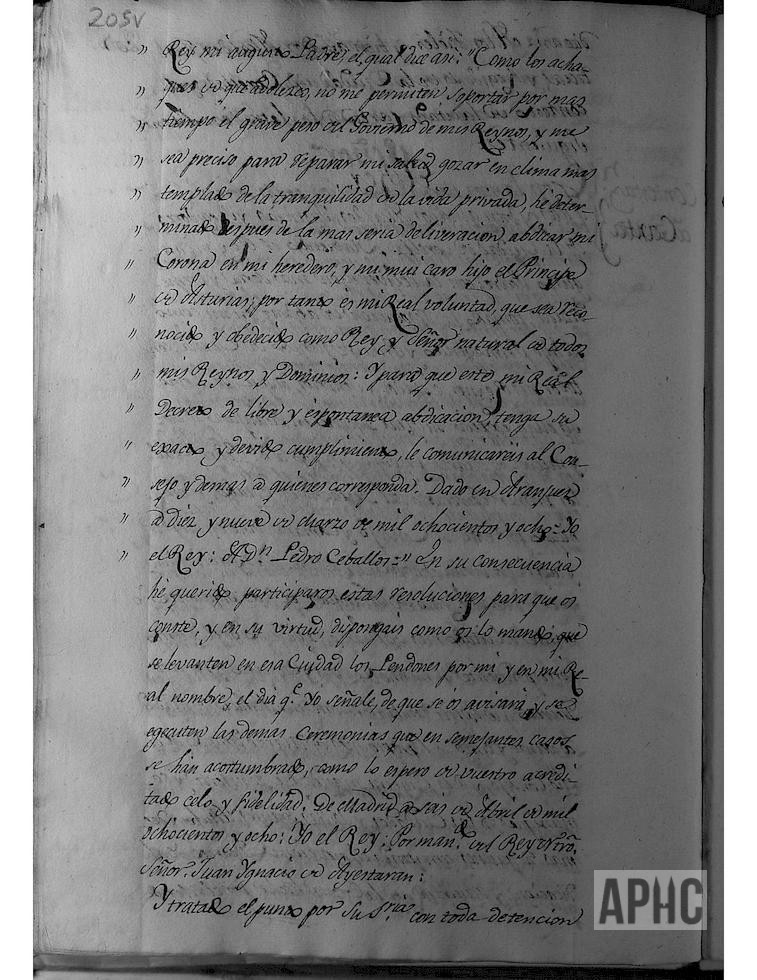 205V
" Rey mi augusto Padre, el qual dice asi: "Como los acha-
" ques de que adolezco, no me permiten soportar por mas
" tiempo el grave peso del Govierno de mis Reynos, y me
" sea preciso para reparar mi salud gozar en clima mas
" templado de la tranquilidad de la vida privada, he deter-
" minado despues de la mas seria deliveracion, abdicar mi
" Corona en mi heredero, y mi mui caro hijo el Principe
" de Asturias; por tanto es mi Real voluntad, que sea reco-
" nocido y obedecido como Rey, y Señor natural de todos
" mis Reynos y Dominios: Y para que este mi Real
" Decreto de libre y espontanea abdicacion, tenga su
" exacto y devido cumplimiento, le comunicareis al Con-
" sejo y demas a quienes corresponda. Dado en Aranjuez
" à diez y nueve de Marzo de mil ochocientos y ocho = Yo
" el Rey: A Dn. Pedro Ceballos=" En su consecuencia
hè querido participaros estas resoluciones para que os
conste, y en su virtud, dispongais como os lo mando, que
se levanten en esa Ciudad los Pendones por mi y en mi Re-
al nombre, el dia qe. Yo señale, de que se os avisarà, y se
egecuten las demas Ceremonias que en semejantes casos
se han acostumbrado, como lo espero de vuestro acredi-
tado celo y fidelidad. De Madrid a seis de Abril de mil
ochocientos y ocho: Yo el Rey: Por mando. del Rey nrõ.
Señor. Juan Ygnacio de Ayestaran:
Y tratado el punto por Su Sria. con toda detencion
APHC